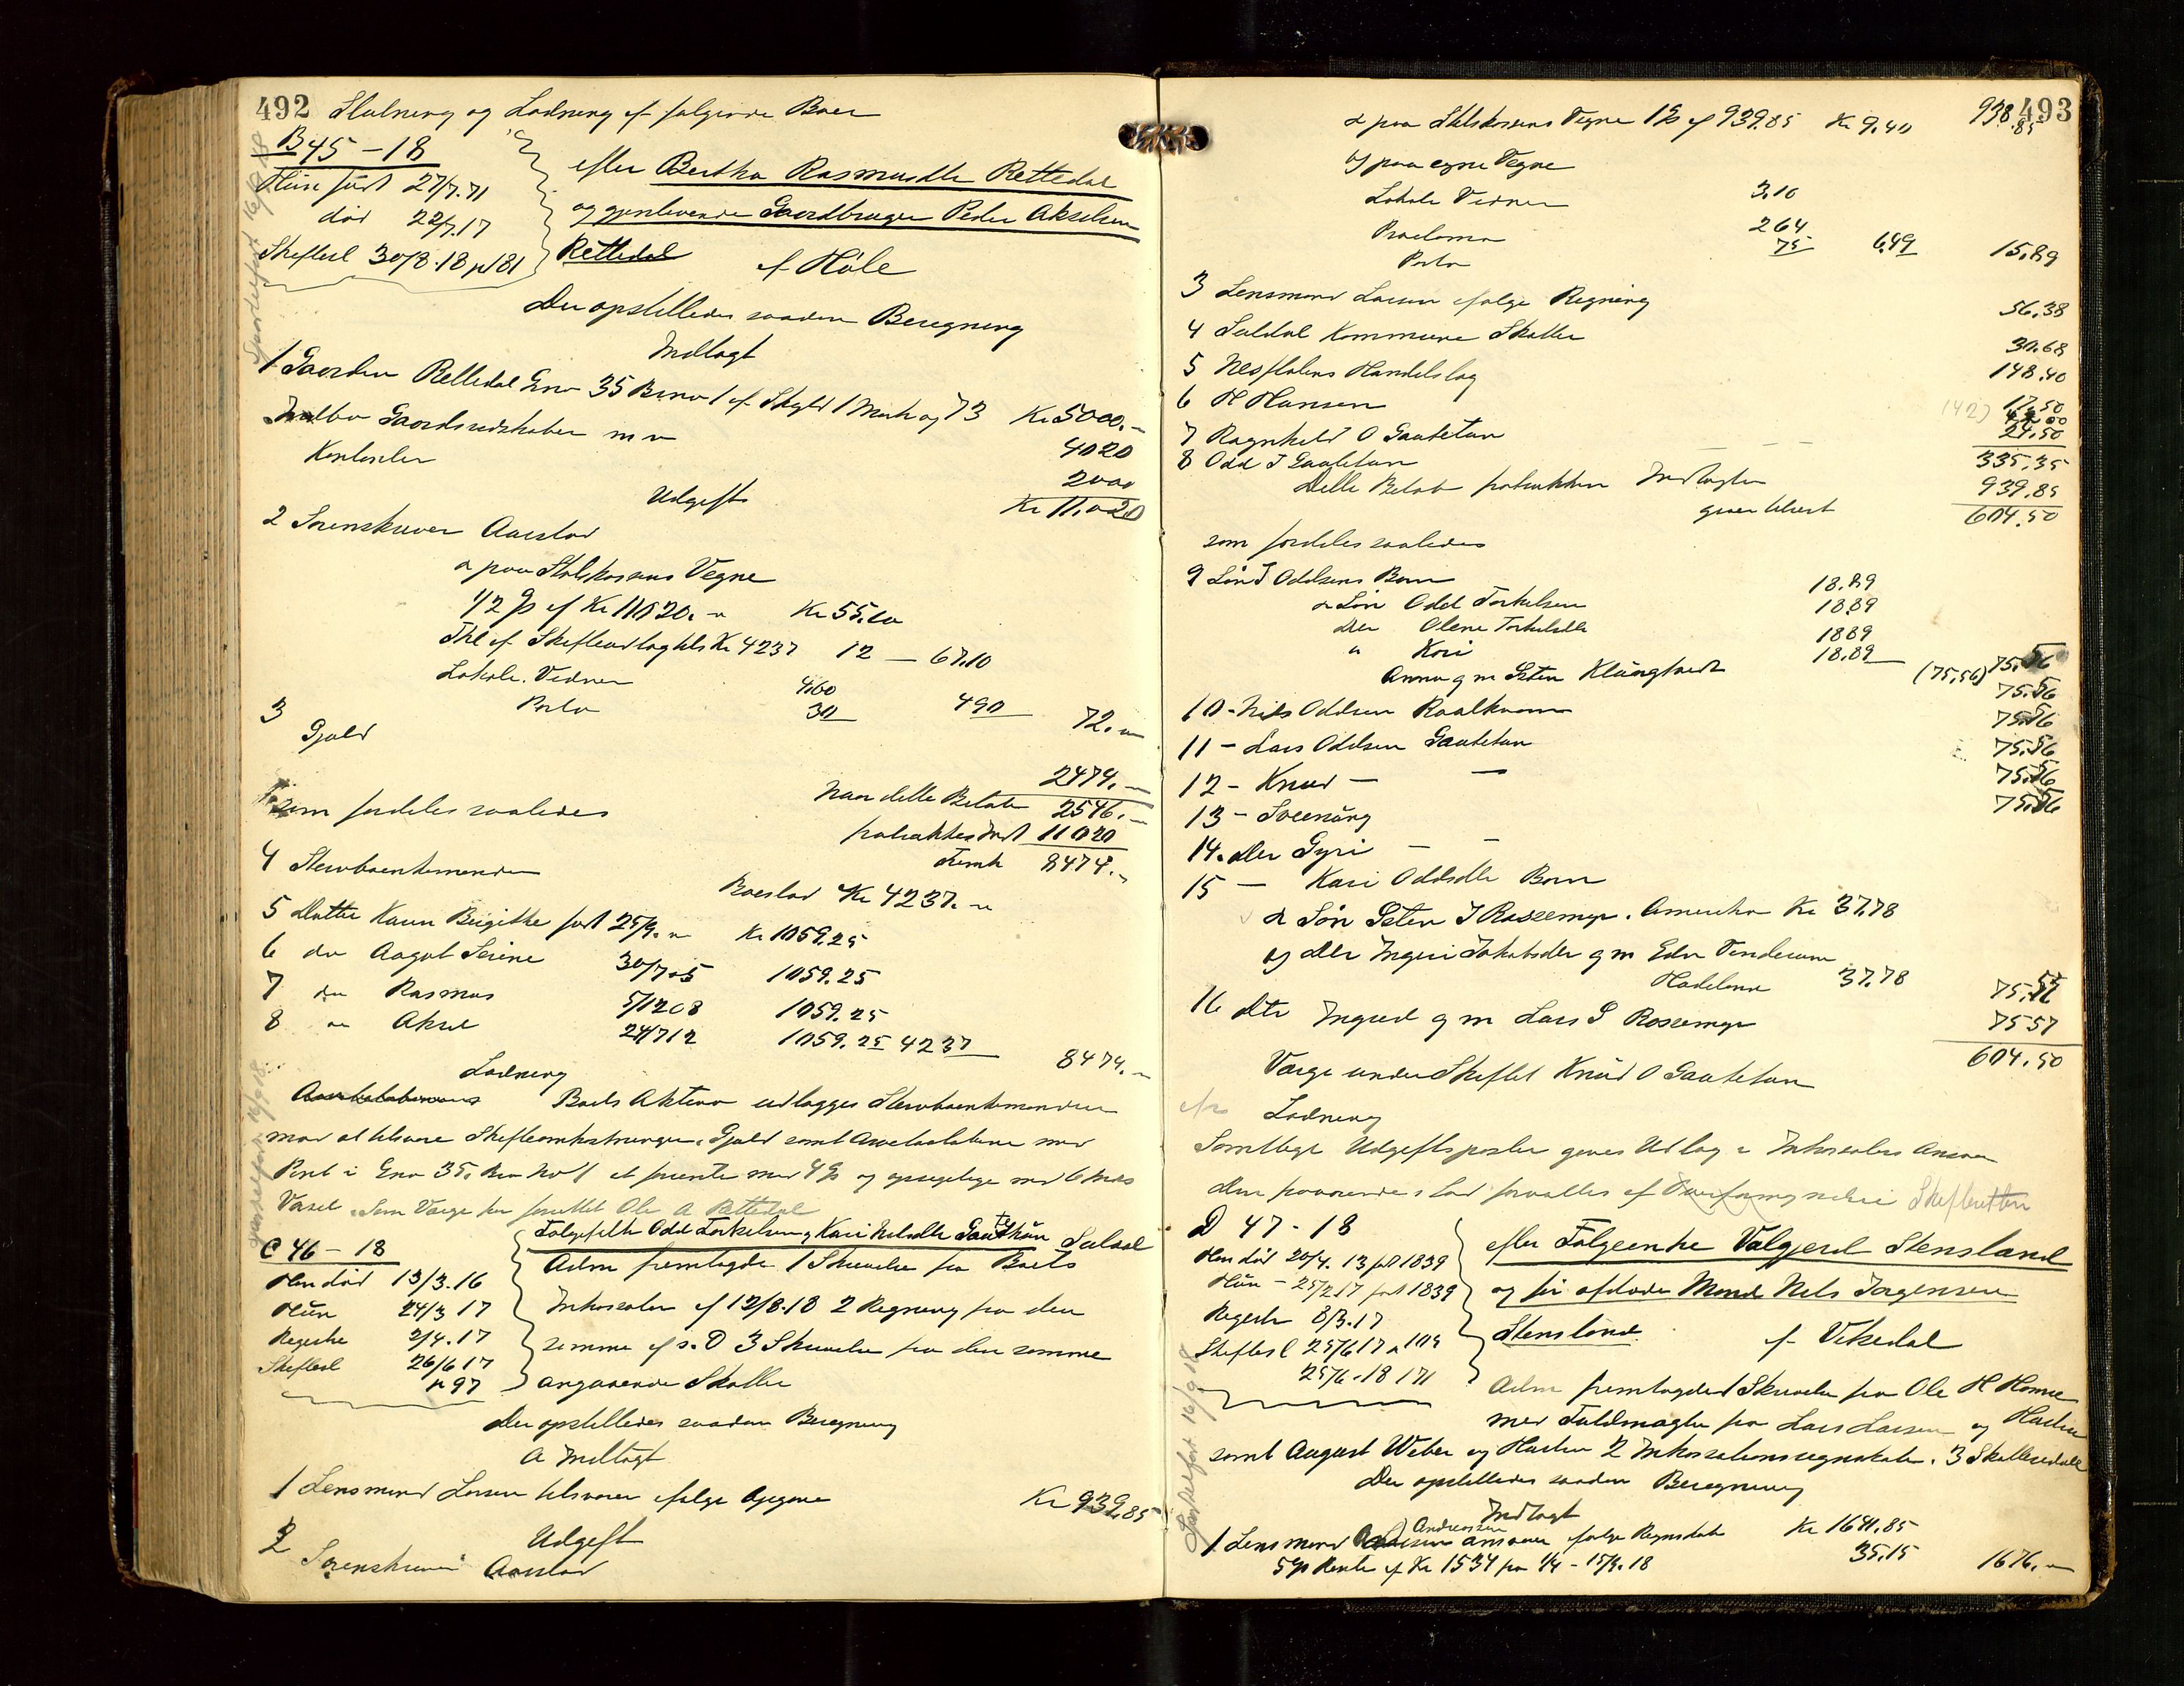 492 Slutning og Lodning af følgende Boer
B 45 – 18
Hun født 27/7.71
død 22/7.17
Skiftesl 30/8.18 p 181
efter Bertha Rasmusdtr Rettedal
og gjenlevende Gaardbruger Peder Akselsen
Rettedal af Høle
Der opstilledes saadan Beregning
Indtægt
1 Gaarden Rettedal Gno 35 Bruno 1 af Skyld 1 Mark og 73 Kr 5000.–
Indbo Gaardsredskaber m v 4020
Kontanter 2000
Kr 11.020
Udgift
2 Sorenskriver Aarstad
a paa Statskassens Vegne
1/2 % af Kr 11020.– Kr 55.10
Thl af Skifteudlægtets Kr 4237 12 – 67.10
Lokale. Vidner 4.60
Porto 30 490 72.–
3 Gjæld 2474.–
Naar dette Beløb 2546.–
fratrækkes Indt 11020
Fremk 8474.–
som fordeles saaledes
4 Stervboenkemanden
Boeslod Kr 4237.–
5 Datter Karen Birgithe født 25/9.– Kr 1059.25
6 do Aagot Serine 30/7 05 1059.25
7 do Rasmus 5/12 08 1059.25
8 do Aksel 24/7 12 1059.25 4237 8474.–
Lodning
Boets Aktiva udlægges Stervboenkemanden
mod at tilsvare Skifteomkostninger. Gjæld samt Arvelodderne med
Pant i Gno 35. Bno No 1 at forrente med 4 % og opsigelige med 6 Mds
Varsel. Som Værge har forrettet Ole A Rettedal
C 46 – 18
Han død 13/3.16
Hun 24/3 17
Registr 2/4.17
Skiftesl 26/6 17
p 97
Følgefolk Odd Torkelsen og Kari Nilsdtr Gautetun Suldal
Adm fremlagde 1 Skrivelse fra Boets
Inkassator af 12/8.18 2 Regning fra den
samme af s. D 3 Skrivelse fra den samme
angaaende Skatter
Der opstilledes saadan Beregning
A Indtægt
1 Lensmand Larsen tilsvarer ifølge Opgave Kr 939.85
Udgift
2 Sorenskriver Aarstad
493
a paa Statskassens Vegne 1 % af 939.85 Kr 9.40 938.85
og paa egne Vegne
Lokale Vidner 3.10
Proclama 264
Porto 75 649 15.89
3 Lensmand Larsen ifølge Regning 56.38
4 Suldal Kommune Skatter 30.68
5 Nesflatens Handelslag 148.40
6 H Hansen 17.50
7 Ragnhild O Gautetun
8 Odd T Gautetun 24.50
335.35
Dette Beløb fratrukken Indtægten 939.85
giver tilrest 604.50
som fordeles saaledes
9 Søn T Oddsens Børn
a Søn Odd Torkelsen 18.89
Dtr Olene Torkelsdtr 1889
" Kari 1889
Anna g m Sten Klungtvedt 18.89 (75,56) 75.56
10 – Nils Oddsen Raalkvam 75.56
11 – Lars Oddsen Gautetun 75.56
12 – Knud – – 75.56
13 – Sveinung 75.56
14. Dtr Gyri – – 75.56
15 – Kari Oddsdtr Børn
a Søn Sten J Rossemyr. Amerika Kr 37.78
og Dtr Ingeri Jakobsdtr g m Edv
Hadeland 37.78 75.56
16 Dtr Ingrid g m Lars S Rossemyr 7557
604.50
Værge under Skiftet Knud O Gautetun
Lodning
Samtlige Udgiftsposter gives Udlæg i Inkassators Ansvar
D 47 – 18
Han død 20/4. 13 født 1839
Hun – 25/2 17 født 1839
Registr 8/3.17
Skiftesl 25/6 17 p 109
25/6.18 171
efter Følgeenke Valgjerd Stensland
og før afdøde Mand Nels Jørgensen
Stensland af Vikedal
Adm fremlagde 1 Skrivelse fra Ole H Homme
med Fuldmagter fra Lars Larsen og Hustru
samt August Weber og Hustru 2 Inkassationsregnskab. 3 Skatteseddel
Der opstilledes saadan Beregning
Indtægt
1 Lensmand Andreassen ansvarer ifølge Regnskab Kr 1641.85
5 % Rente af Kr 1534 fra 1/4 – 15/9.18 35.15 1676.–